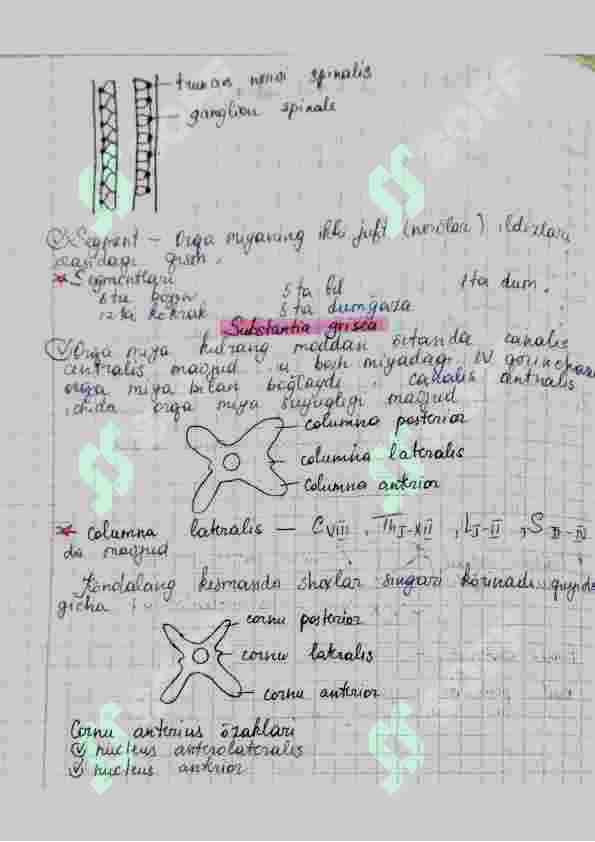 truncus nervi spinalis
ganglion spinale
Segment – Orqa miyaning ikki juft (nervlar) ildizlari
orasidagi qism.
Segmentlari
8 ta bo'yin 5 ta bel 1 ta dum.
12 ta ko'krak 5 ta dumg'aza
Substantia grisea
Orqa miya kulrang moddan o'rtasida canalis
centralis mavjud u bosh miyadagi IV qorincha
orqa miya bilan bog'laydi. canalis centralis
ichida orqa miya suyuqligi mavjud
columna posterior
columna lateralis
columna anterior
columna lateralis — C VIII, Th I-XII, L I-II, S II-IV
da mavjud
Ko'ndalang kesmanda shoxlar singari ko'rinadi quyida
gicha
cornu posterior
cornu lateralis
cornu anterior
Cornu anterius o'zaklari
nucleus anterolateralis
nucleus anterior
SOFF
SOFF
SOFF
SOFF
SOFF
SOFF